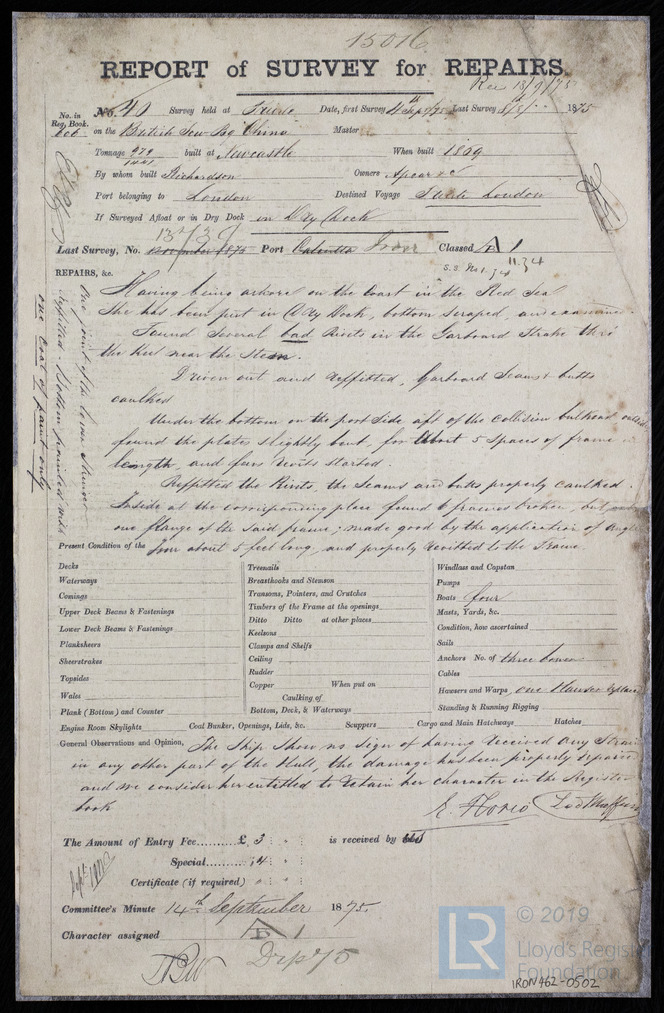 15016
REPORT of SURVEY for REPAIRS.
Rec 13/9/75
No. in Reg. Book.
No. 40 Survey held at Trieste Date, first Survey 4th Sept/75 Last Survey 1875
on the British Screw Stg China Master
Tonnage 979 built at Newcastle When built 1869
1441
By whom built Richardson Owners Apcar & C
Port belonging to London Destined Voyage London
If Surveyed Afloat or in Dry Dock in Dry Dock
Last Survey, No. November 1873 Port Calcutta Classed A 1
S.S. No 1. 74 11.74
REPAIRS, &c.
Having being ashore on the Coast in the Red Sea
She has been put in Dry Dock, bottom scraped, and examined.
Found Several bad Rivets in the Garboard Strake thro'
the Keel near the Stem.
Driven out and refitted, Garboard Seams & butts
caulked
Under the bottom on the port side aft of the collision bulkhead outside
found the plates slightly bent, for about 5 spaces of frame in
length, and few rivets started.
Refitted the Rivets, the Seams and butts properly caulked.
Inside at the corresponding place found 6 frames broken, but only
one flange of the said frame; made good by the application of Angle
Present Condition of the
Iron about 5 feet long, and properly rivitted to the Frame.
One joint of the lower
refitted. Bottom painted with
one coat of paint only
Decks
Waterways
Comings
Upper Deck Beams & Fastenings
Lower Deck Beams & Fastenings
Planksheers
Sheerstrakes
Topsides
Wales
Plank (Bottom) and Counter
Treenails
Breasthooks and Stemson
Transoms, Pointers, and Crutches
Timbers of the Frame at the openings
Ditto Ditto at other places
Keelsons
Clamps and Shelfs
Ceiling
Rudder
Copper When put on
Caulking of
Bottom, Deck, & Waterways
Windlass and Capstan
Pumps
Boats four
Masts, Yards, &c.
Condition, how ascertained
Sails
Anchors No. of three bower
Cables
Hawsers and Warps, one Hawser
Standing & Running Rigging
Engine Room Skylights Coal Bunker, Openings, Lids, &c. Scuppers Cargo and Main Hatchways Hatches
General Observations and Opinion, The Ship show no sign of having received any Strain
in any other part of the Hull, the damage has been properly repaired
and we consider her entitled to retain her character in the Register
book
The Amount of Entry Fee £ 3 is received by
Special 4
Certificate (if required)
Committee's Minute 14th September 1875.
Character assigned A 1
© 2019
LR
Lloyd's Register
Foundation
IRON462-0502